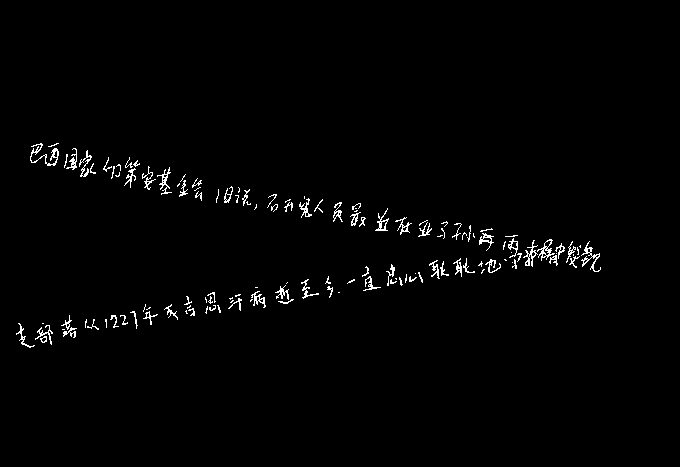 巴西国家印第安基金会1日说,研究人员最近在亚马孙
支部落从1227年成吉思汗病逝至今,一直忠心耿耿地